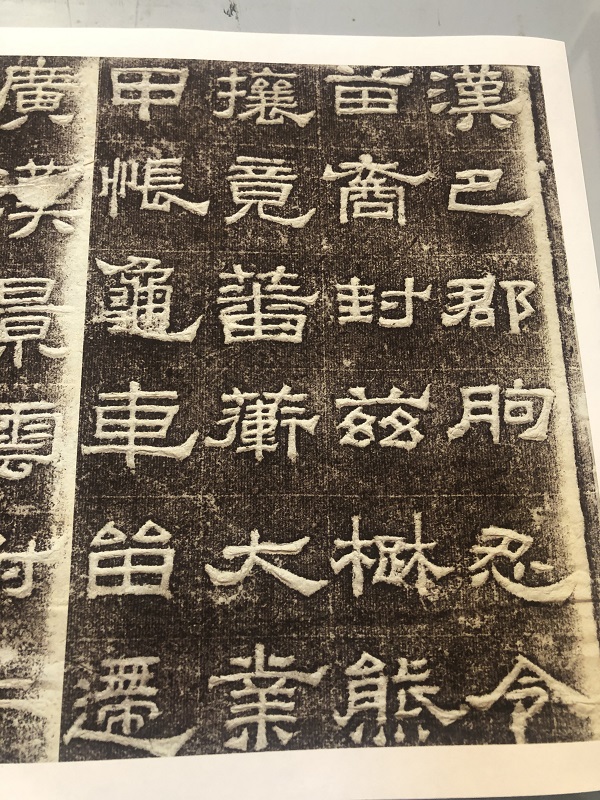 漢巴郡朐忍令
苗裔封茲熊
攘竟蕃衛大業
甲帳龜車留遰
廣漢景雲